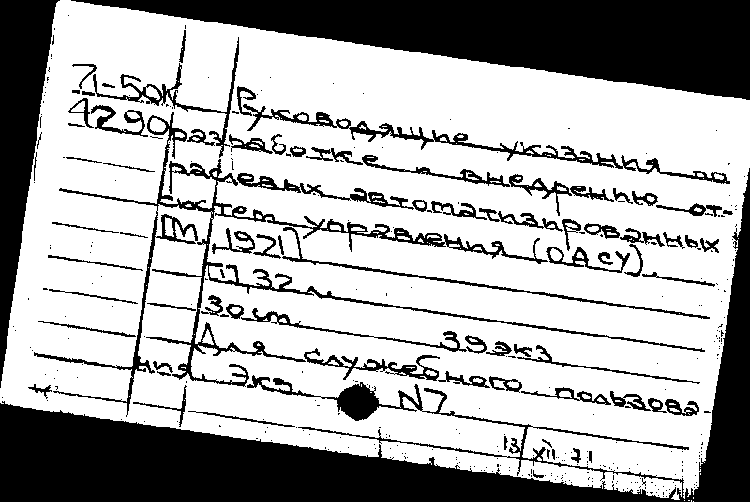 71-50К Руководящие указания по
4290 разработке и внедрению от-
раслевых автоматизированных
систем управления (ОАСУ).
[М., 1971]
II, 32 л.
30 cm. 39 экз
Для служебного пользова
ния. Экз. N7.
13/XII 71